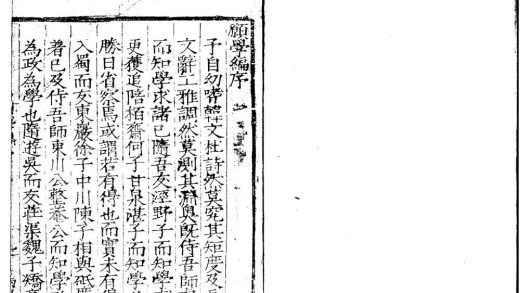 願學編序
予自幼嗜韓文杜詩然莫究其矩度及長
文辭工雅調然莫測其淵奧既侍吾師
而知學求諸已隨吾友涇野子而知學
更獲追陪栢齋何子甘泉湛子而知學
勝日省察焉或謂若有得也而實未有得
入蜀而友東巖徐子中川陳子相與砥
著已及侍吾師東川公整菴公而知學
為政為學也隨遊吳而友莊渠魏子矯